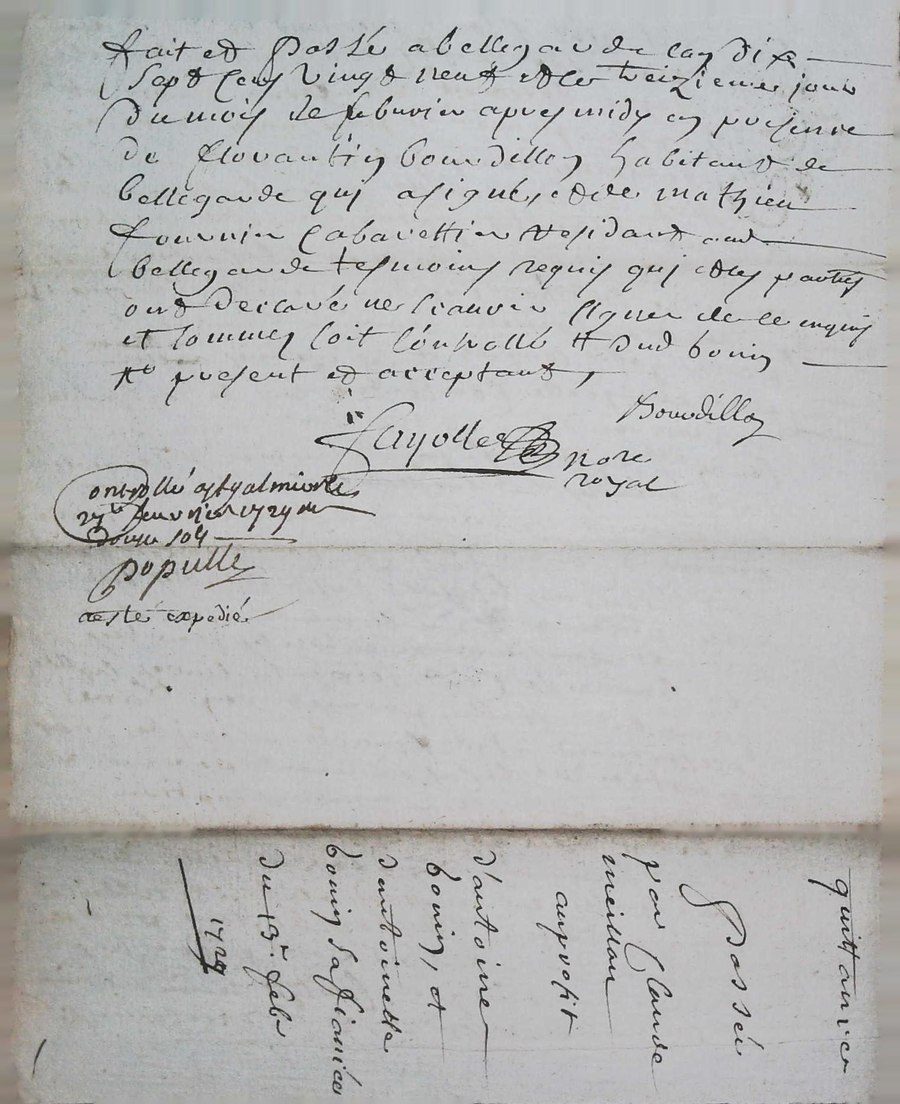 fait et passé a bellegarde l'an dix
sept cens vingt neuf et le treizieme jour
du mois de febvrier apres midy en presence
de florantin bourdillon habitant de
bellegarde qui a signé, et de mathieu
fournier cabarettier residant aud
bellegarde tesmoins requis qui et les parties
ont declaré ne scavoir signer de ce enquis
et sommes soit controllé dud bouin
present et acceptant,
Bourdillon
fayolle nore
royal
Controllé a st galmier le
27e feuvrier 1729
douze sols
populle
a esté expedié
quittance
passé
par Claude
meissau
au profit
d'antoine
bouin, et
d'antoinette
bouin sa fiancée
du 13e feb
1729